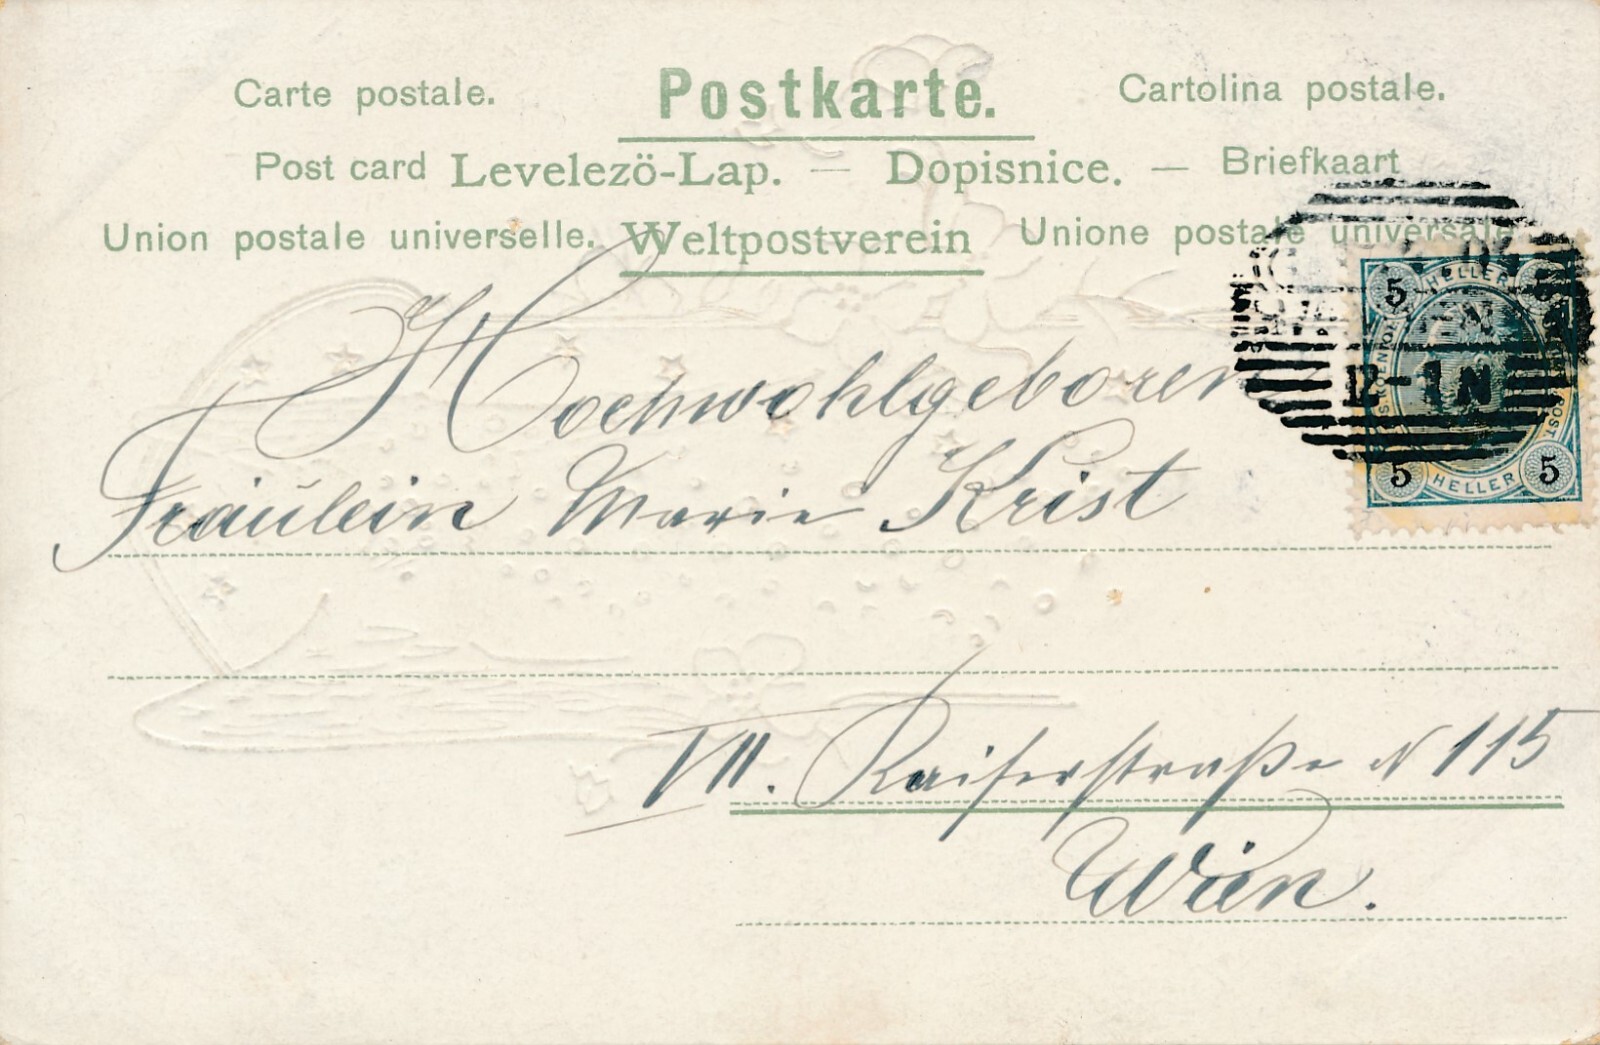 Carte postale. Postkarte. Cartolina postale.
Post card Levelezö-Lap. — Dopisnice. — Briefkaart
Union postale universelle. Weltpostverein Unione postale universale
5 HELLER
12-1N
5 HELLER 5
Hochwohlgeboren
Fräulein Marie Krist
VII. Kaiserstraße N 115
Wien.